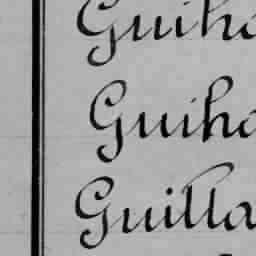 Guiho
Guiho
Guilla